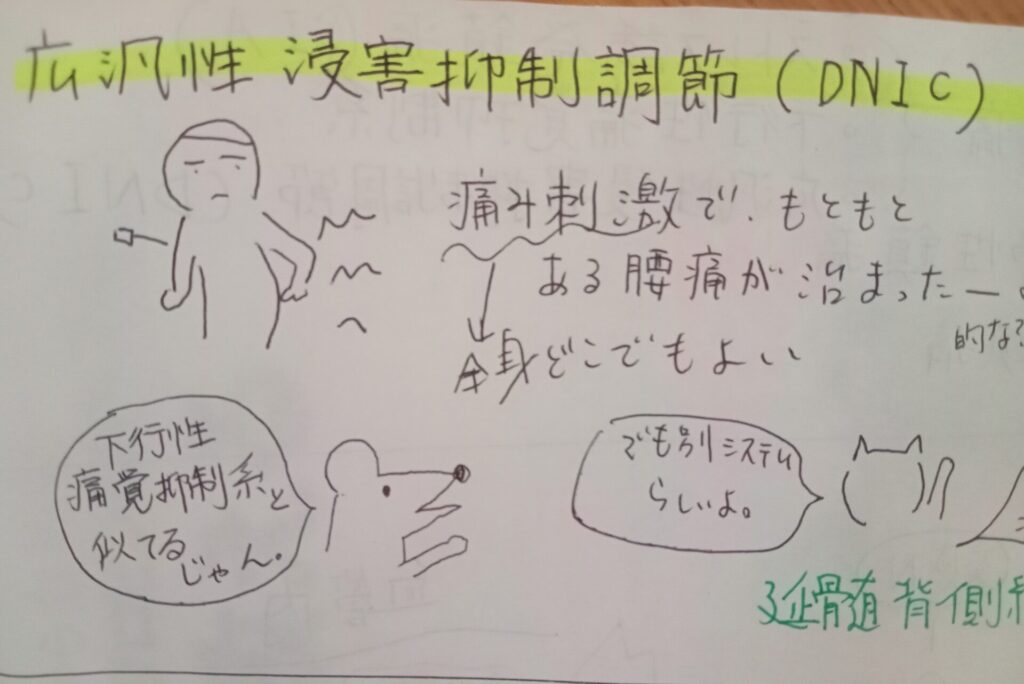 広汎性 浸害抑制調節 (DNIC)
痛み刺激で、もともと
ある腰痛が治まったー。
的な
全身どこでもよい
下行性
痛覚抑制系と
似てる
じゃん。
でも別システム
らしいよ。
延髄背側